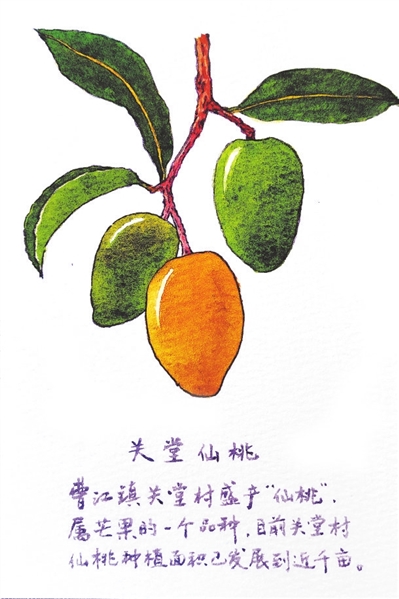 关堂仙桃
曹江镇关堂村盛产“仙桃”,
属芒果的一个品种,目前关堂村
仙桃种植面积已发展到近千亩。